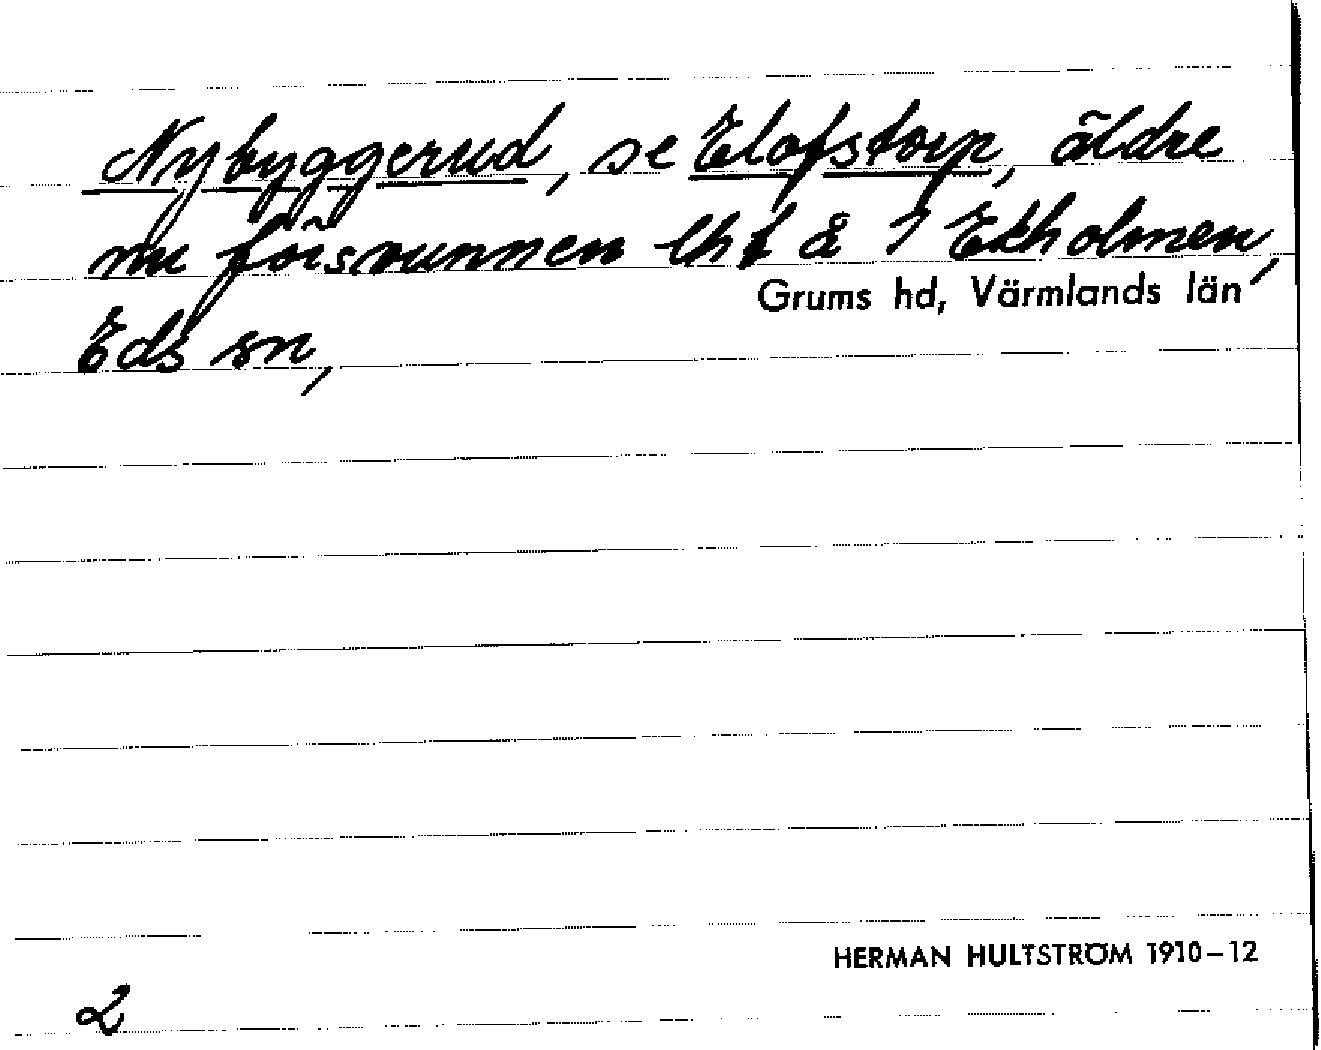 Nybyggerud, se Elofstorp, äldre
nu försvunnen lht å 1 Ekholmen,
Grums hd, Värmlands län
Eds sn,
HERMAN HULTSTRÖM 1910-12
2